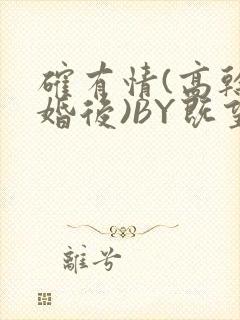 確有情(高幹
婚後)BY既望
離兮